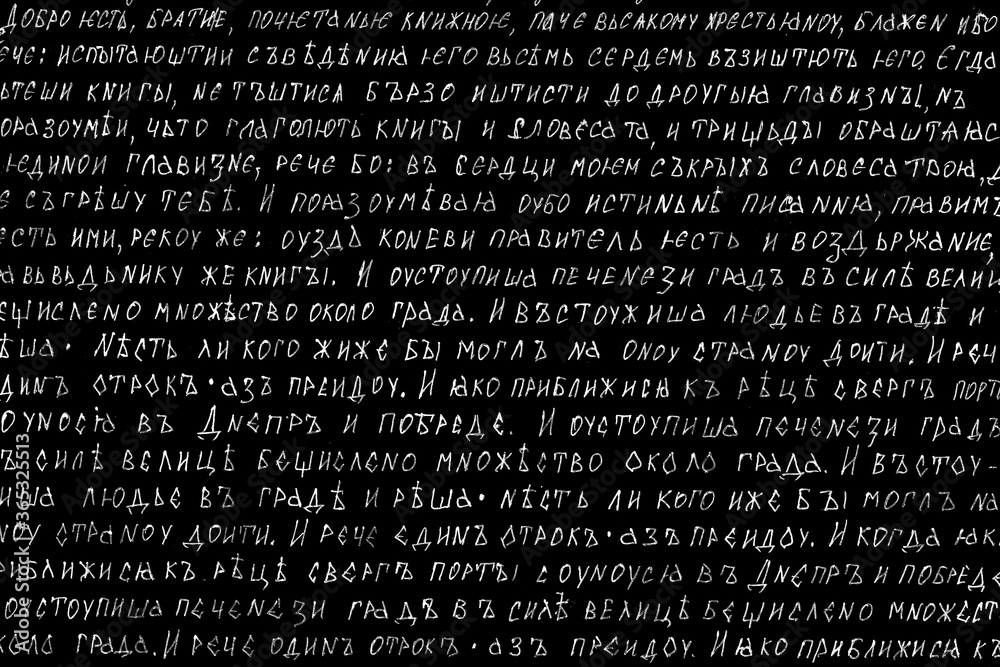 Добро ѥсть, братиѥ, почіетаньѥ книжноѥ, паче вьсакому хрестьꙗноу, блажен ибо
ече: испытаюштии съвѣдѣниꙗ ѥго вьсѣмь сердемь възиштють ѥго. Егда
ьтеши книгы, не тъштися бързо иштисти до дроугыꙗ главизны, нъ
оразоумѣи, чьто глаголють книгы и словеса та, и тришьды обраштаюс
ѥдинои главизне, рече бо: въ сердци моѥм съкрыхъ словеса твоꙗ, д
е съгрѣшу тебѣ. И поразоумѣваꙗ оубо истиньнѣ писанниꙗ, правимъ
есть ими, рекоу же: оузда коневи правитель ѥсть и воздьржание,
авьвьдьнику же книгы. И оустоупиша печенези градъ въ силѣ велиц
ещислено множѣство около града. И въстоужиша людье въ градѣ и
ѣша· Нѣсть ли кого жиже бы моглъ на оноу страноу доити. И реч
динъ отрокъ·азъ преидоу. И ꙗко приближисꙗ къ рѣцѣ свергъ порт
оуносꙗ въ Днепръ и побреде. И оустоупиша печенези градъ
ъ силѣ велицѣ бещислено множѣство около града. И въстоу-
иша людье въ градѣ и рѣша· нѣсть ли кого иже бы моглъ на
ноу страноу доити. И рече единъ отрокъ·азъ преидоу. И когда ꙗк
риближисꙗ къ рѣцѣ свергъ порты соуноусꙗ въ Днепръ и побреде
оустоупиша печенези градъ въ силѣ велицѣ бещислено множест
коло града. И рече одинъ отрокъ·азъ преидоу. И ꙗко приближися къ
Adobe Stock | #365325513